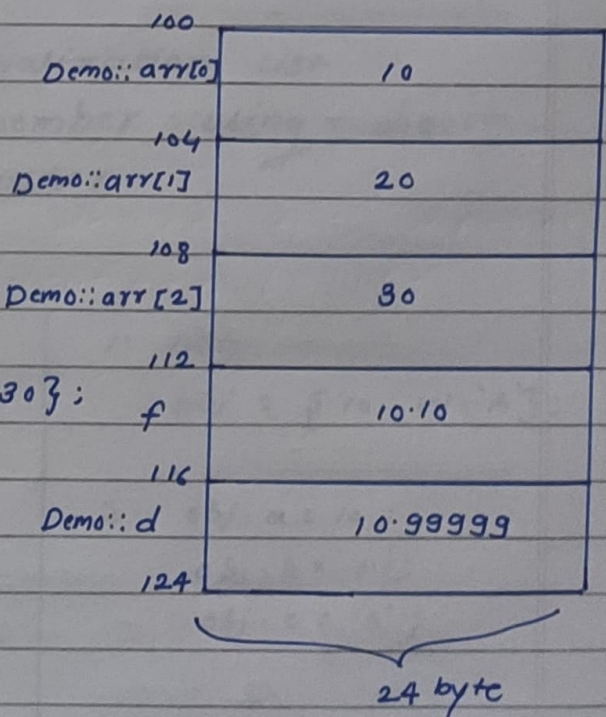 100
Demo:: arr[0] 10
104
Demo::arr[1] 20
108
Demo::arr [2] 30
112
30};
f 10.10
116
Demo:: d 10.99999
124
24 byte